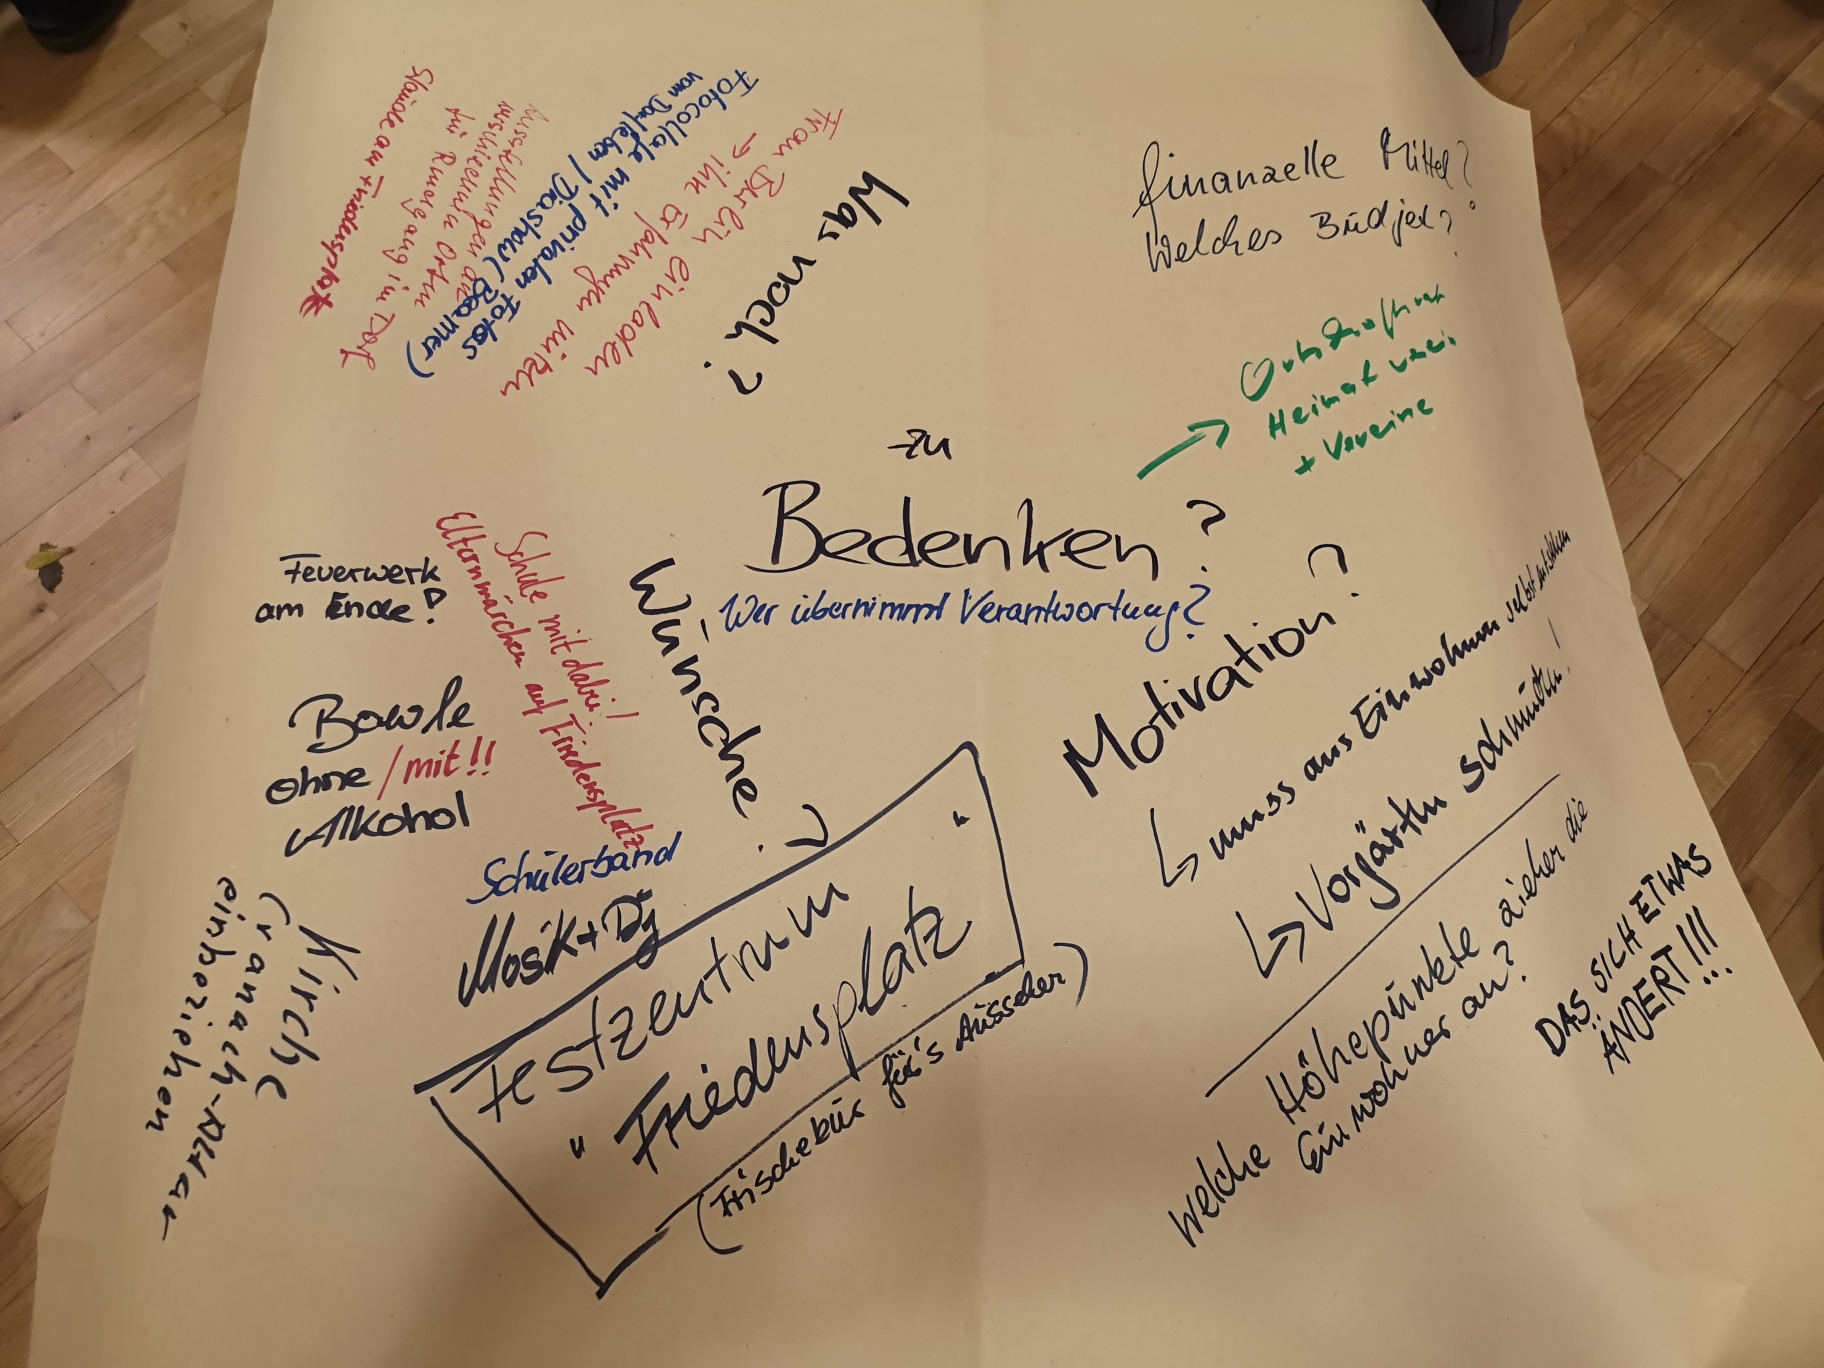 Was noch?
Frau Berlin einladen
→ ihre Erfahrungen nutzen
Fotocollage mit privaten Fotos
vom Dorfleben / Diashow (Beamer)
Ausstellungen an
verschiedenen Orten
für Rundgang im Dorf
Stände am Friedensplatz
finanzelle Mittel?
Welches Büdjet?
→ Ortschaftsrat
Heimatverein
+ Vereine
zu
Bedenken?
Wer übernimmt Verantwortung?
Motivation?
↳ muss aus Einwohnern selbst entstehen
↳ Vorgärten schmücken!
Welche Höhepünkte ziehen die
Einwohner an?
DAS SICH ETWAS
ÄNDERT!!!
Wünsche
Schule mit dabei!
Elternmärchen auf Friedensplatz
Feuerwerk
am Ende!
Bowle
ohne /mit!!
Alkohol
Schülerband
Musik + Dj
Festzentrum
"Friedensplatz"
(Frischekür für's Aüssehen)
Kirche
Cranach-Altar
einbeziehen